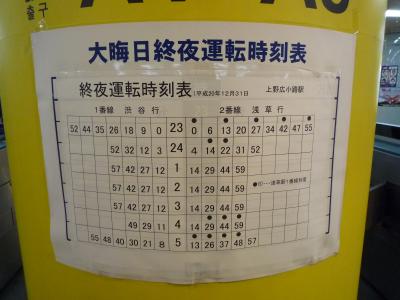 출구
大晦日終夜運転時刻表
終夜運転時刻表 (平成20年12月31日 上野広小路駅
1番線 渋谷行 2番線 浅草行
52 44 35 26 18 9 0 23 0 6 13 20 27 34 42 47 55
52 32 12 3 24 4 14 22 31 52
57 42 27 12 1 14 29 44 59
57 42 27 12 2 14 29 44 59
57 42 27 12 3 14 29 44 59
49 29 11 4 14 29 44 59
55 48 40 30 21 8 5 13 26 37 48 57